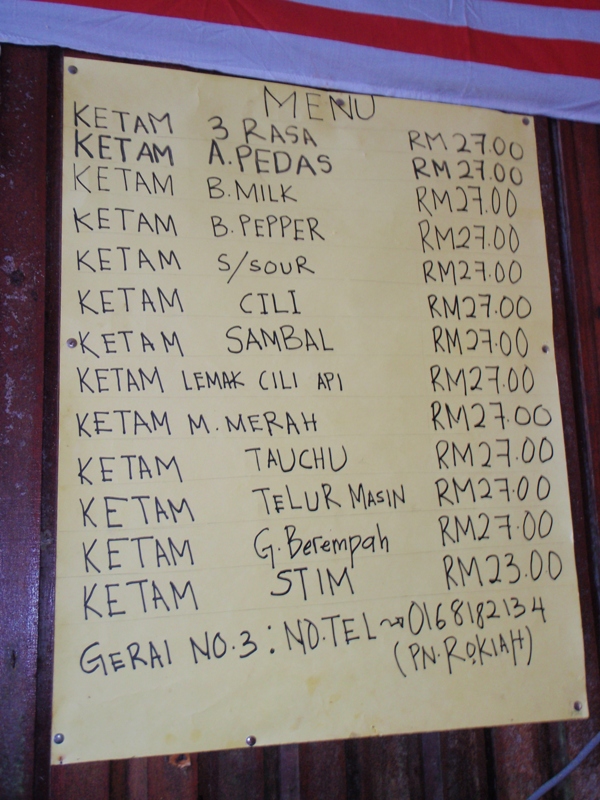 MENU
KETAM 3 RASA RM27.00
KETAM A.PEDAS RM27.00
KETAM B.MILK RM27.00
KETAM B.PEPPER RM27.00
KETAM S/SOUR RM27.00
KETAM CILI RM27.00
KETAM SAMBAL RM27.00
KETAM LEMAK CILI API RM27.00
KETAM M.MERAH RM27.00
KETAM TAUCHU RM27.00
KETAM TELUR MASIN RM27.00
KETAM G.Berempah RM27.00
KETAM STIM RM23.00
GERAI NO.3 : NO.TEL ⇝ 0168182134
(PN.ROKIAH)